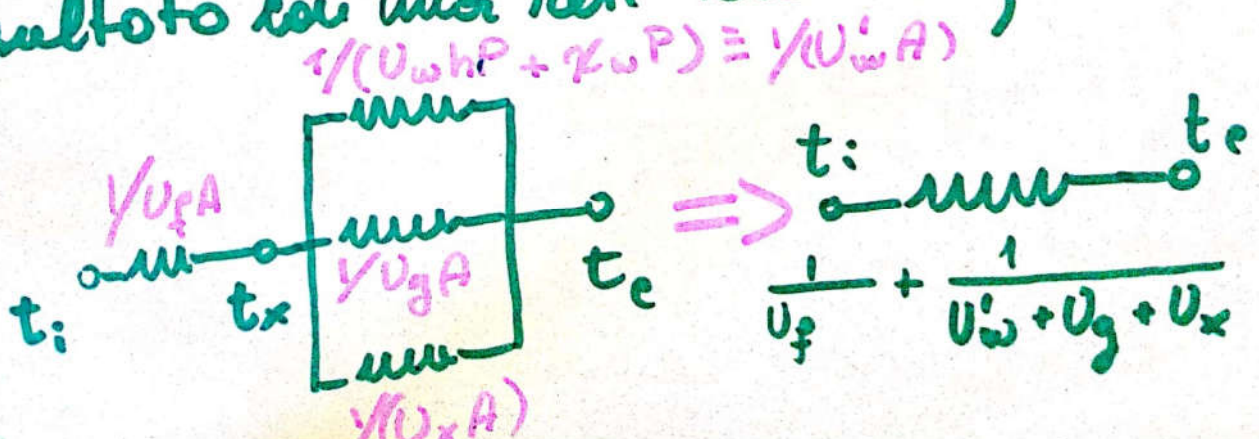 1/(U_w hP + χ_w P) ≡ 1/(U'_w A)
1/U_f A
t_i
t_x
1/U_g A
t_e
1/(U_x A)
=>
t_i
t_e
1/U_f + 1/(U'_w + U_g + U_x)